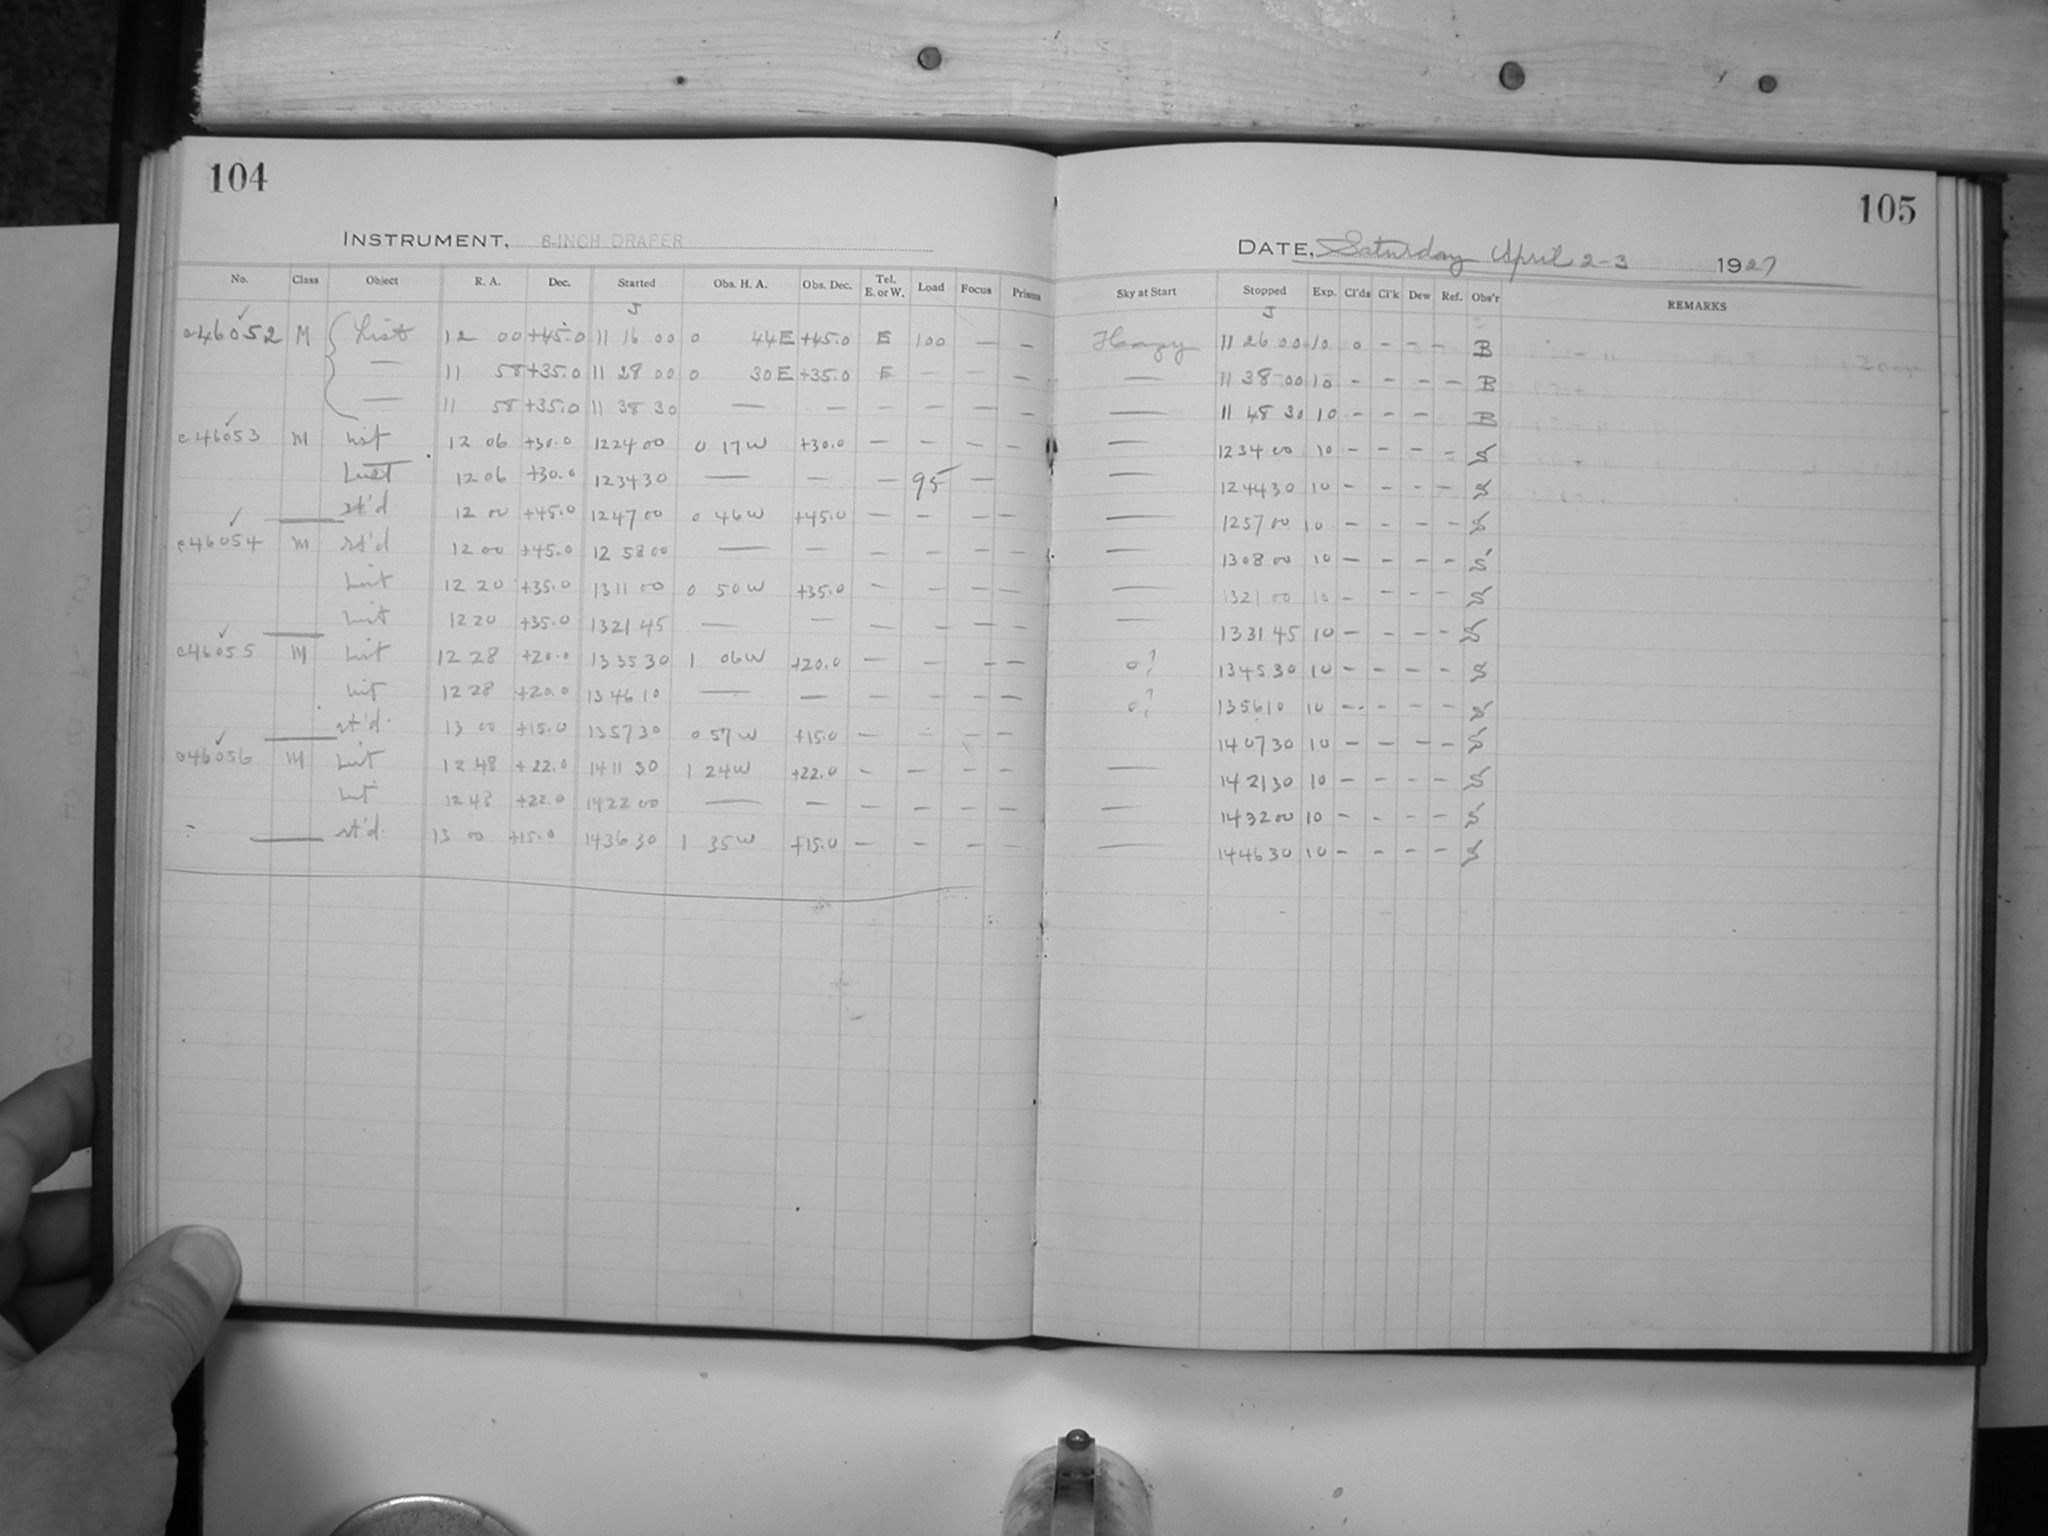 104
INSTRUMENT, 8-INCH DRAPER
No. Class Object R. A. Dec. Started Obs. H. A. Obs. Dec. Tel. E. or W. Load Focus Prisms
J
46052 M List 12 00 +45.0 11 16 00 0 44E +45.0 E 100 — —
— 11 58 +35.0 11 28 00 0 30E +35.0 E — — —
— 11 58 +35.0 11 38 30 — — — — — —
c46053 M List 12 06 +30.0 12 24 00 0 17W +30.0 — — — —
List 12 06 +30.0 12 34 30 — — — 95 —
st'd 12 00 +45.0 12 47 00 0 46W +45.0 — — — —
c46054 M st'd 12 00 +45.0 12 58 00 — — — — — —
List 12 20 +35.0 13 11 00 0 50W +35.0 — — — —
List 12 20 +35.0 13 21 45 — — — — — —
c46055 M List 12 28 +20.0 13 35 30 1 06W +20.0 — — — —
List 12 28 +20.0 13 46 10 — — — — — —
st'd. 13 00 +15.0 13 57 30 0 57W +15.0 — — — —
46056 M List 12 48 +22.0 14 11 30 1 24W +22.0 — — — —
List 12 48 +22.0 14 22 00 — — — — — —
st'd. 13 00 +15.0 14 36 30 1 35W +15.0 — — — —
105
DATE, Saturday April 2-3 1927
Sky at Start Stopped Exp. Cl'ds Cl'k Dew Ref. Obs'r REMARKS
J
Hazy 11 26 00 10 0 - - - B
— 11 38 00 10 - - - - B
— 11 48 30 10 - - - B
— 12 34 00 10 - - - - S
— 12 44 30 10 - - - - S
— 12 57 00 10 - - - - S
— 13 08 00 10 - - - - S
— 13 21 00 10 - - - - S
— 13 31 45 10 - - - - S
0? 13 45 30 10 - - - - S
0? 13 56 10 10 - - - - S
14 07 30 10 - - - - S
— 14 21 30 10 - - - - S
— 14 32 00 10 - - - - S
— 14 46 30 10 - - - - S